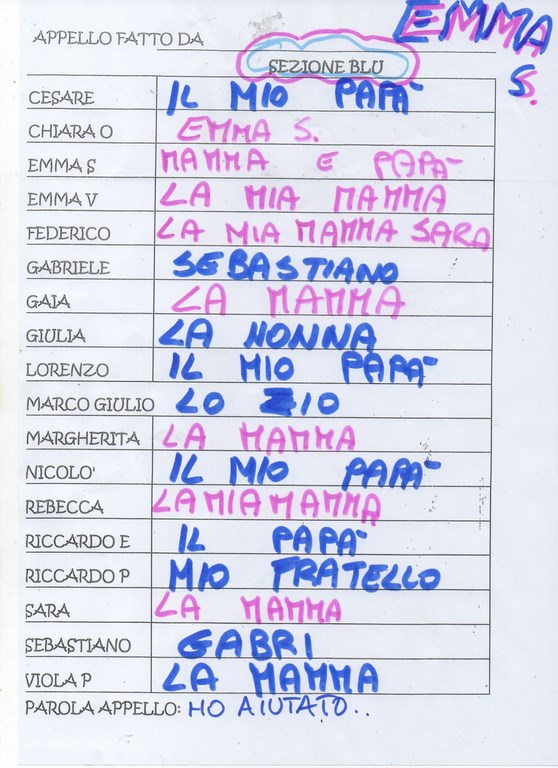 APPELLO FATTO DA EMMA S.
SEZIONE BLU
CESARE IL MIO PAPÀ
CHIARA O EMMA S.
EMMA S MAMMA E PAPÀ
EMMA V LA MIA MAMMA
FEDERICO LA MIA MAMMA SARA
GABRIELE SEBASTIANO
GAIA LA MAMMA
GIULIA LA NONNA
LORENZO IL MIO PAPÀ
MARCO GIULIO LO ZIO
MARGHERITA LA MAMMA
NICOLO' IL MIO PAPÀ
REBECCA LA MIA MAMMA
RICCARDO E IL PAPÀ
RICCARDO P MIO FRATELLO
SARA LA MAMMA
SEBASTIANO GABRI
VIOLA P LA MAMMA
PAROLA APPELLO: HO AIUTATO..